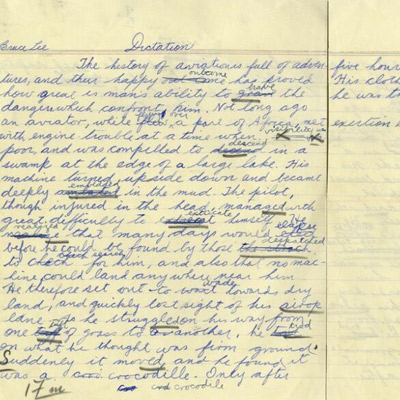 Bruce Lee Dictation
The history of aviration is full of adven-
tures, and thus happy outcome has proved
how great is man's ability to brave the
dangers which confront him. Not long ago
an aviator, while flying over a part of Africa, met
with engine trouble at a time when visibility was
poor, and was compelled to descend in a
swamp at the edge of a large lake. His
machine turned upside down and became
deeply embedded in the mud. The pilot,
though injured in the head, managed with
great difficulty to extricate himself. He
realized that many days would elapse
before he could be found by those
to check for him, and also that no mac-
line could land any where near him
He therefore set out to wade towards dry
land, and quickly lost sight of his airop
lane. As he struggled on his way from
one of grass to another, he trod
on what he thought was firm ground.
Suddenly it moved and he found it
was a crocodille. Only after
17 m crocodile
five hour
His cloth
he was t
exertion